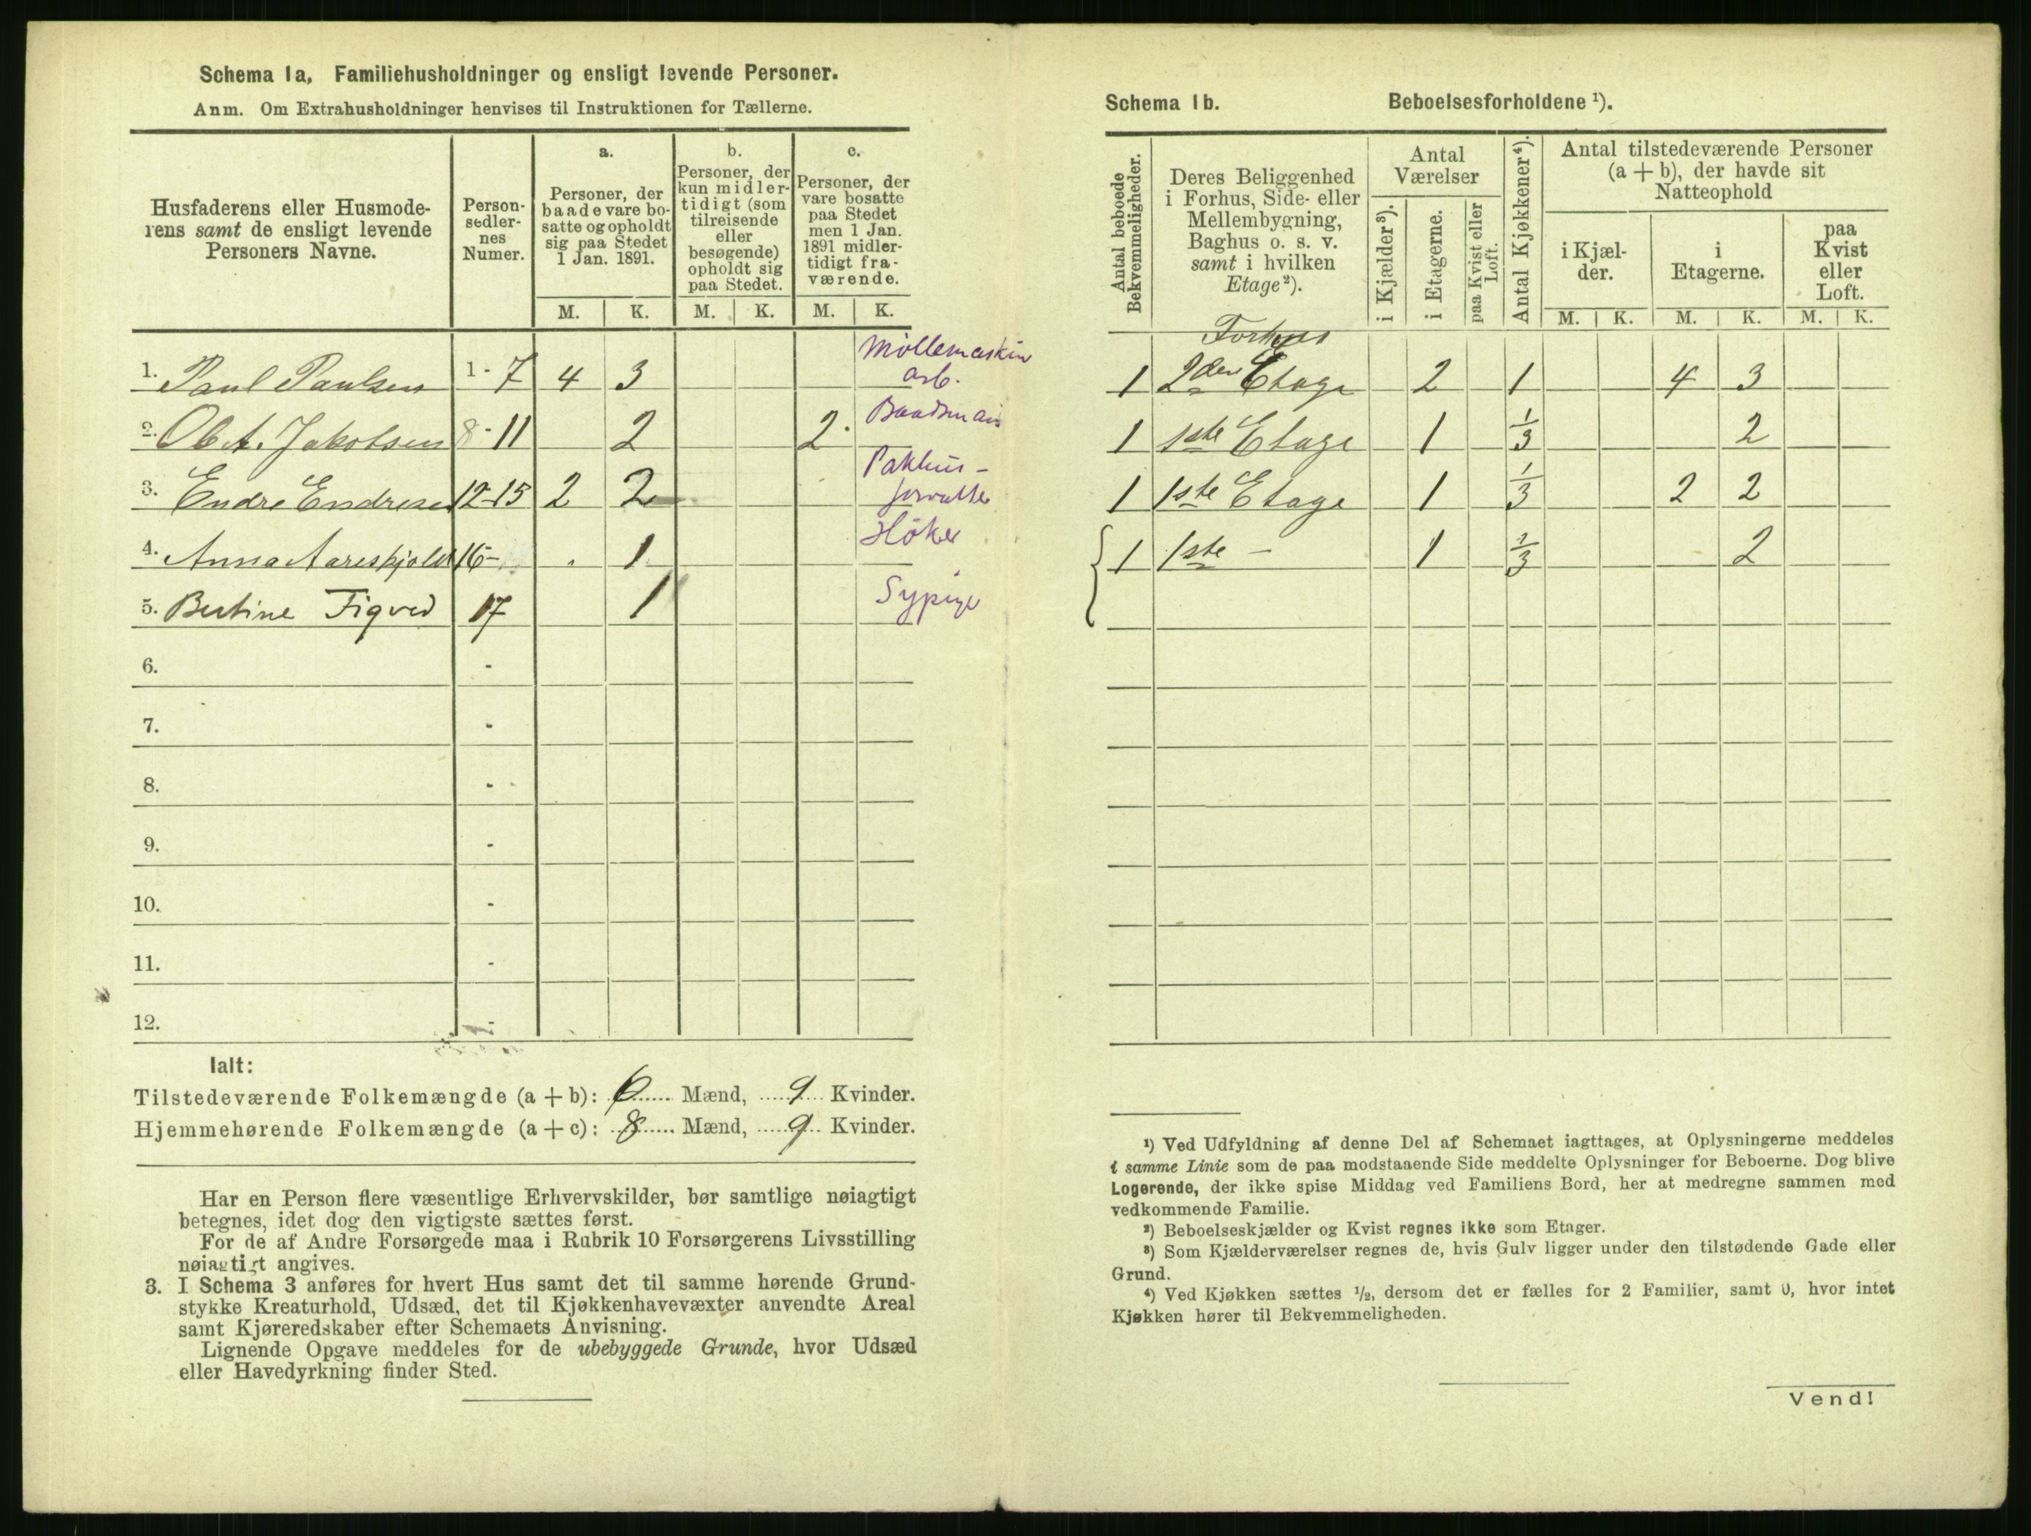 Schema 1a, Familiehusholdninger og ensligt levende Personer.
Anm. Om Extrahusholdninger henvises til Instruktionen for Tællerne.
Husfaderens eller Husmoderens samt de ensligt levende Personers Navne.
Personsedlernes Numer.
a.
Personer, der baade vare bosatte og opholdt sig paa Stedet 1 Jan. 1891.
b.
Personer, der kun midlertidigt (som tilreisende eller besøgende) opholdt sig paa Stedet.
c.
Personer, der vare bosatte paa Stedet men 1 Jan. 1891 midlertidigt fraværende.
M. K. M. K. M. K.
1. Paul Paulsen 1 - 7 4 3 Møllemaskin arb.
2. Ol A. Jakobsen 8 - 11 2 2. Baadsman
3. Endre Endresen 12-15 2 2 Pakhusforvalter
4. Anna Aareskjold 16- . 1 Høker
5. Bertine Tigved 17 1 Sypige
6. -
7. -
8. -
9. -
10. -
11. -
12. -
Ialt:
Tilstedeværende Folkemængde (a + b): 6 Mænd, 9 Kvinder.
Hjemmehørende Folkemængde (a + c): 8 Mænd, 9 Kvinder.
Har en Person flere væsentlige Erhvervskilder, bør samtlige nøiagtigt
betegnes, idet dog den vigtigste sættes først.
For de af Andre Forsørgede maa i Rubrik 10 Forsørgerens Livsstilling
nøiagtigt angives.
3. I Schema 3 anføres for hvert Hus samt det til samme hørende Grund-
stykke Kreaturhold, Udsæd, det til Kjøkkenhavevæxter anvendte Areal
samt Kjøreredskaber efter Schemaets Anvisning.
Lignende Opgave meddeles for de ubebyggede Grunde, hvor Udsæd
eller Havedyrkning finder Sted.
Schema 1b. Beboelsesforholdene ¹).
Antal beboede Bekvemmeligheder.
Deres Beliggenhed i Forhus, Side- eller Mellembygning, Baghus o. s. v. samt i hvilken Etage²).
Antal Værelser
i Kjælder³).
i Etagerne.
paa Kvist eller Loft.
Antal Kjøkkener⁴).
Antal tilstedeværende Personer (a + b), der havde sit Natteophold
i Kjælder.
i Etagerne.
paa Kvist eller Loft.
M. K. M. K. M. K.
Forhus
1 2den Etage 2 1 4 3
1 1ste Etage 1 1/3 2
1 1ste Etage 1 1/3 2 2
1 1ste - 1 1/3 2
¹) Ved Udfyldning af denne Del af Schemaet iagttages, at Oplysningerne meddeles
i samme Linie som de paa modstaaende Side meddelte Oplysninger for Beboerne. Dog blive
Logerende, der ikke spise Middag ved Familiens Bord, her at medregne sammen med
vedkommende Familie.
²) Beboelseskjælder og Kvist regnes ikke som Etager.
³) Som Kjælderværelser regnes de, hvis Gulv ligger under den tilstødende Gade eller
Grund.
⁴) Ved Kjøkken sættes ½, dersom det er fælles for 2 Familier, samt 0, hvor intet
Kjøkken hører til Bekvemmeligheden.
Vend!